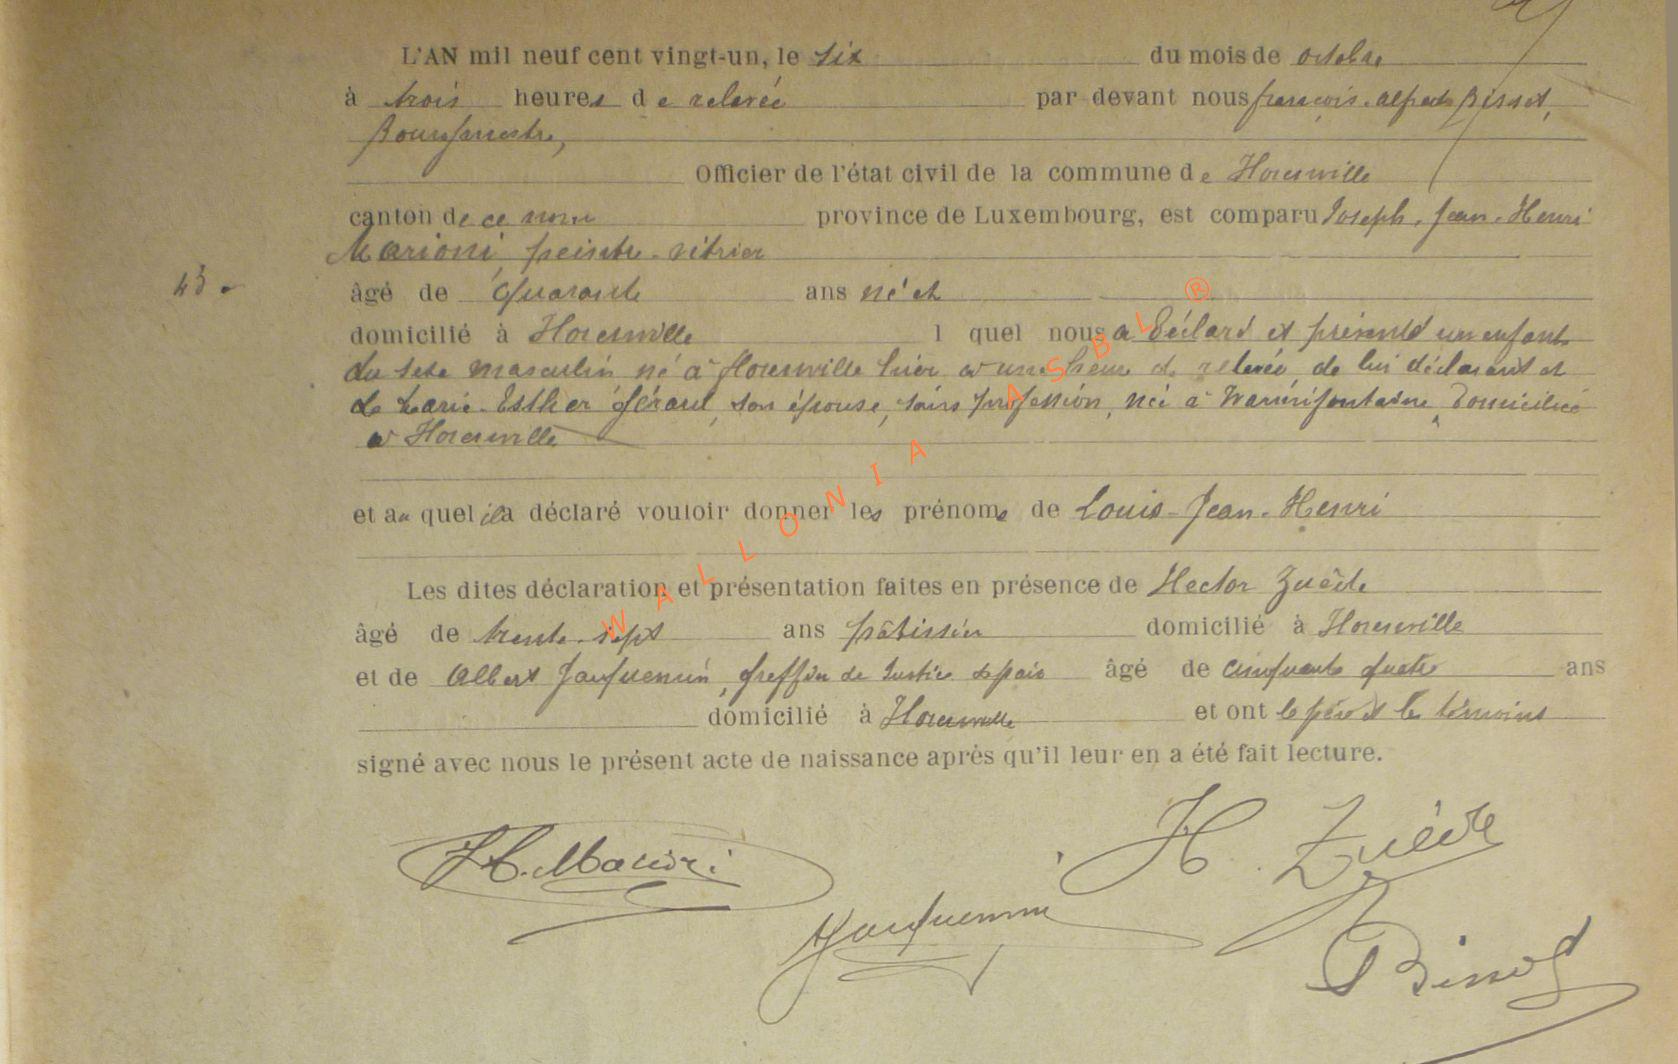 L'AN mil neuf cent vingt-un, le six du mois de octobre
à trois heures de relevée par devant nous françois-alfred Bisset,
Bourgmestre,
Officier de l'état civil de la commune de
canton de ce nom province de Luxembourg, est comparu Joseph-Jean-Henri
Marioni, peintre-vitrier
43.
âgé de Quarante ans né et
domicilié à lquel nous a Déclaré et présenté un enfant
du sexe masculin né à hier à une heure de relevée de lui déclarant et
de Marie-Esther Gérard, son épouse, sans profession, née à Domiciliée
à
et au quel il a déclaré vouloir donner les prénoms de Louis-Jean-Henri
Les dites déclaration et présentation faites en présence de Hector
âgé de trente-sept ans pâtissier domicilié à
et de Albert Jacquemin, Greffier de Justice de paix âgé de cinquante quatre ans
domicilié à et ont le père et les témoins
signé avec nous le présent acte de naissance après qu'il leur en a été fait lecture.
WALLONIA ASBL ®
H. Marioni
H.
Jacquemin